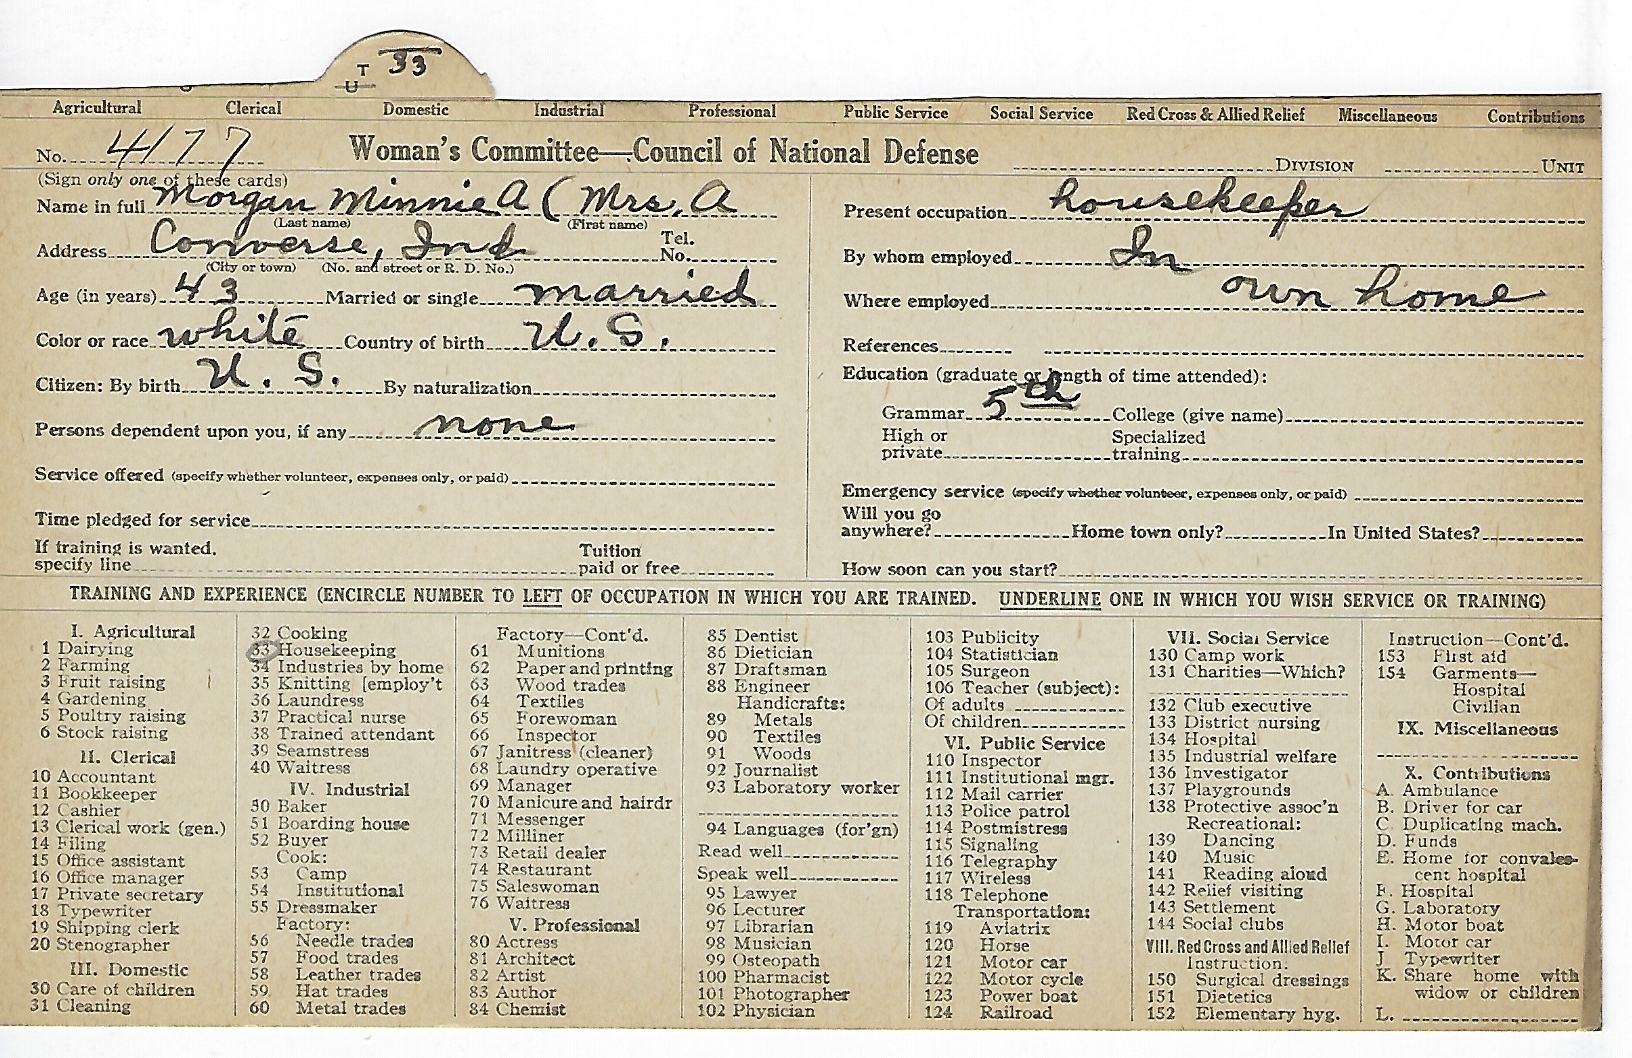 T 33
U
Agricultural Clerical Domestic Industrial Professional Public Service Social Service Red Cross & Allied Relief Miscellaneous Contributions
No. 4177 Woman's Committee—Council of National Defense DIVISION UNIT
(Sign only one of these cards)
Name in full Morgan Minnie A (Mrs. A
(Last name) (First name)
Address Converse, Ind Tel. No.
(City or town) (No. and street or R. D. No.)
Age (in years) 43 Married or single married
Color or race white Country of birth U. S.
Citizen: By birth U. S. By naturalization
Persons dependent upon you, if any none
Service offered (specify whether volunteer, expenses only, or paid)
Time pledged for service
If training is wanted, specify line Tuition paid or free
Present occupation housekeeper
By whom employed In
Where employed own home
References
Education (graduate or length of time attended):
Grammar 5th College (give name)
High or private Specialized training
Emergency service (specify whether volunteer, expenses only, or paid)
Will you go anywhere? Home town only? In United States?
How soon can you start?
TRAINING AND EXPERIENCE (ENCIRCLE NUMBER TO LEFT OF OCCUPATION IN WHICH YOU ARE TRAINED. UNDERLINE ONE IN WHICH YOU WISH SERVICE OR TRAINING)
I. Agricultural
1 Dairying
2 Farming
3 Fruit raising
4 Gardening
5 Poultry raising
6 Stock raising
II. Clerical
10 Accountant
11 Bookkeeper
12 Cashier
13 Clerical work (gen.)
14 Filing
15 Office assistant
16 Office manager
17 Private secretary
18 Typewriter
19 Shipping clerk
20 Stenographer
III. Domestic
30 Care of children
31 Cleaning
32 Cooking
33 Housekeeping
34 Industries by home
35 Knitting [employ't
36 Laundress
37 Practical nurse
38 Trained attendant
39 Seamstress
40 Waitress
IV. Industrial
50 Baker
51 Boarding house
52 Buyer
Cook:
53 Camp
54 Institutional
55 Dressmaker
Factory:
56 Needle trades
57 Food trades
58 Leather trades
59 Hat trades
60 Metal trades
Factory—Cont'd.
61 Munitions
62 Paper and printing
63 Wood trades
64 Textiles
65 Forewoman
66 Inspector
67 Janitress (cleaner)
68 Laundry operative
69 Manager
70 Manicure and hairdr
71 Messenger
72 Milliner
73 Retail dealer
74 Restaurant
75 Saleswoman
76 Waitress
V. Professional
80 Actress
81 Architect
82 Artist
83 Author
84 Chemist
85 Dentist
86 Dietician
87 Draftsman
88 Engineer
Handicrafts:
89 Metals
90 Textiles
91 Woods
92 Journalist
93 Laboratory worker
94 Languages (for'gn)
Read well
Speak well
95 Lawyer
96 Lecturer
97 Librarian
98 Musician
99 Osteopath
100 Pharmacist
101 Photographer
102 Physician
103 Publicity
104 Statistician
105 Surgeon
106 Teacher (subject):
Of adults
Of children
VI. Public Service
110 Inspector
111 Institutional mgr.
112 Mail carrier
113 Police patrol
114 Postmistress
115 Signaling
116 Telegraphy
117 Wireless
118 Telephone
Transportation:
119 Aviatrix
120 Horse
121 Motor car
122 Motor cycle
123 Power boat
124 Railroad
VII. Social Service
130 Camp work
131 Charities—Which?
132 Club executive
133 District nursing
134 Hospital
135 Industrial welfare
136 Investigator
137 Playgrounds
138 Protective assoc'n
Recreational:
139 Dancing
140 Music
141 Reading aloud
142 Relief visiting
143 Settlement
144 Social clubs
VIII. Red Cross and Allied Relief
Instruction:
150 Surgical dressings
151 Dietetics
152 Elementary hyg.
Instruction—Cont'd.
153 First aid
154 Garments—
Hospital
Civilian
IX. Miscellaneous
X. Contributions
A. Ambulance
B. Driver for car
C. Duplicating mach.
D. Funds
E. Home for convales-
cent hospital
F. Hospital
G. Laboratory
H. Motor boat
I. Motor car
J. Typewriter
K. Share home with
widow or children
L.